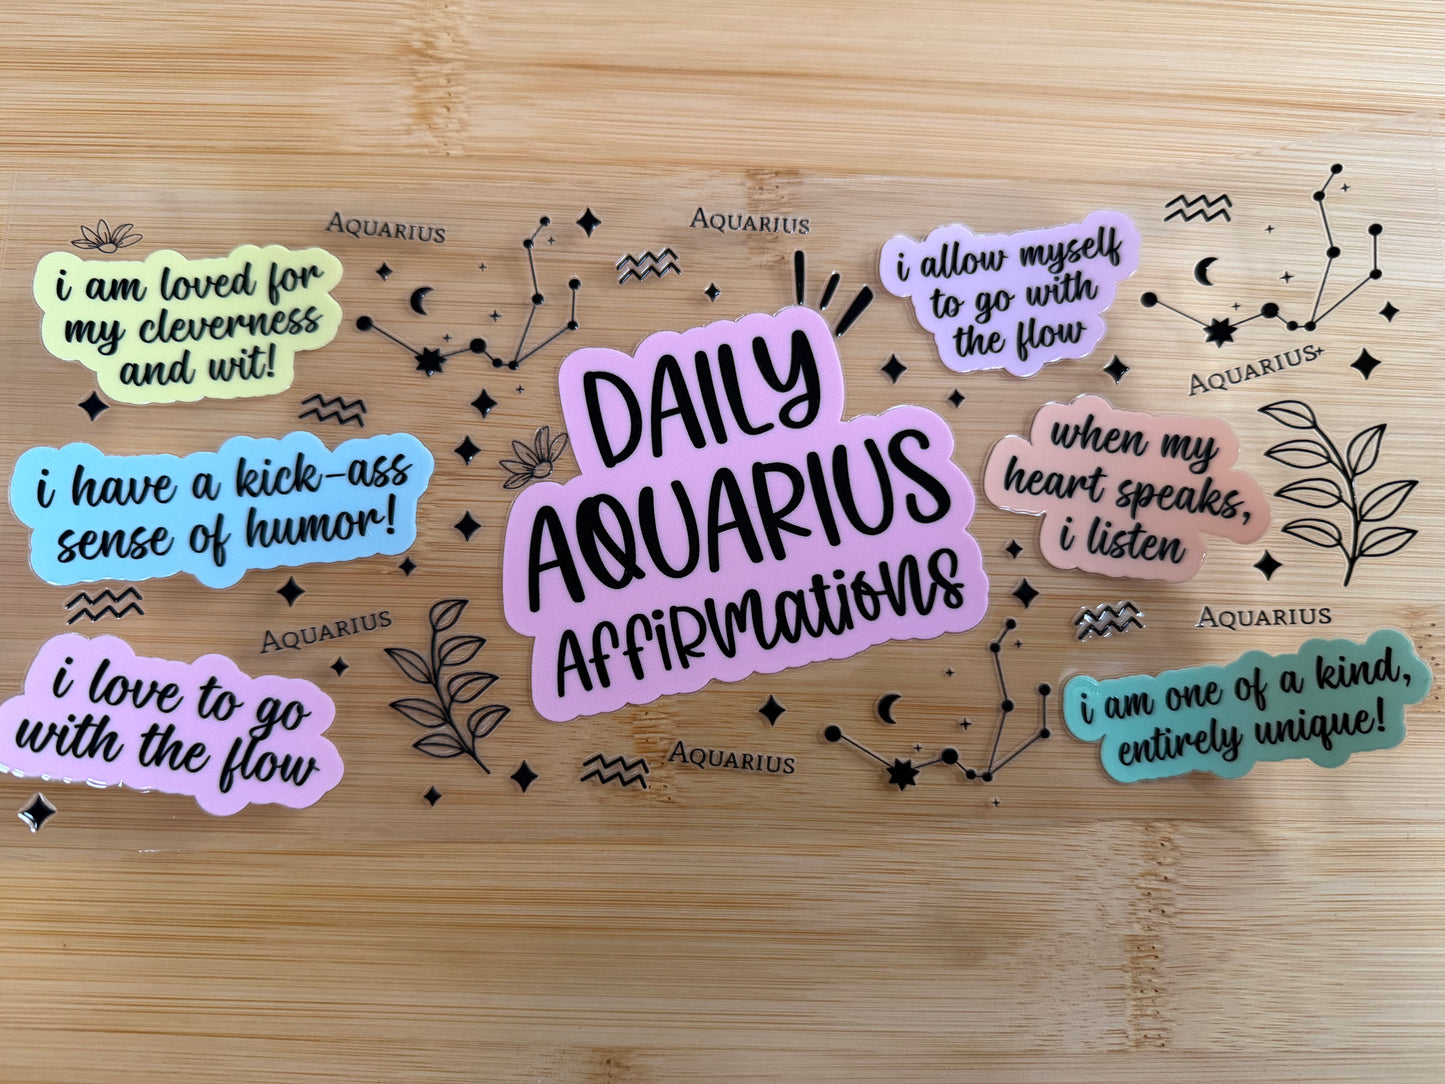 Aquarius
Aquarius
i am loved for
my cleverness
and wit!
i have a kick-ass
sense of humor!
Aquarius
i love to go
with the flow
DAILY
AQUARIUS
AffiRmatioNs
Aquarius
i allow myself
to go with
the flow
Aquarius
when my
heart speaks,
i listen
Aquarius
i am one of a kind,
entirely unique!